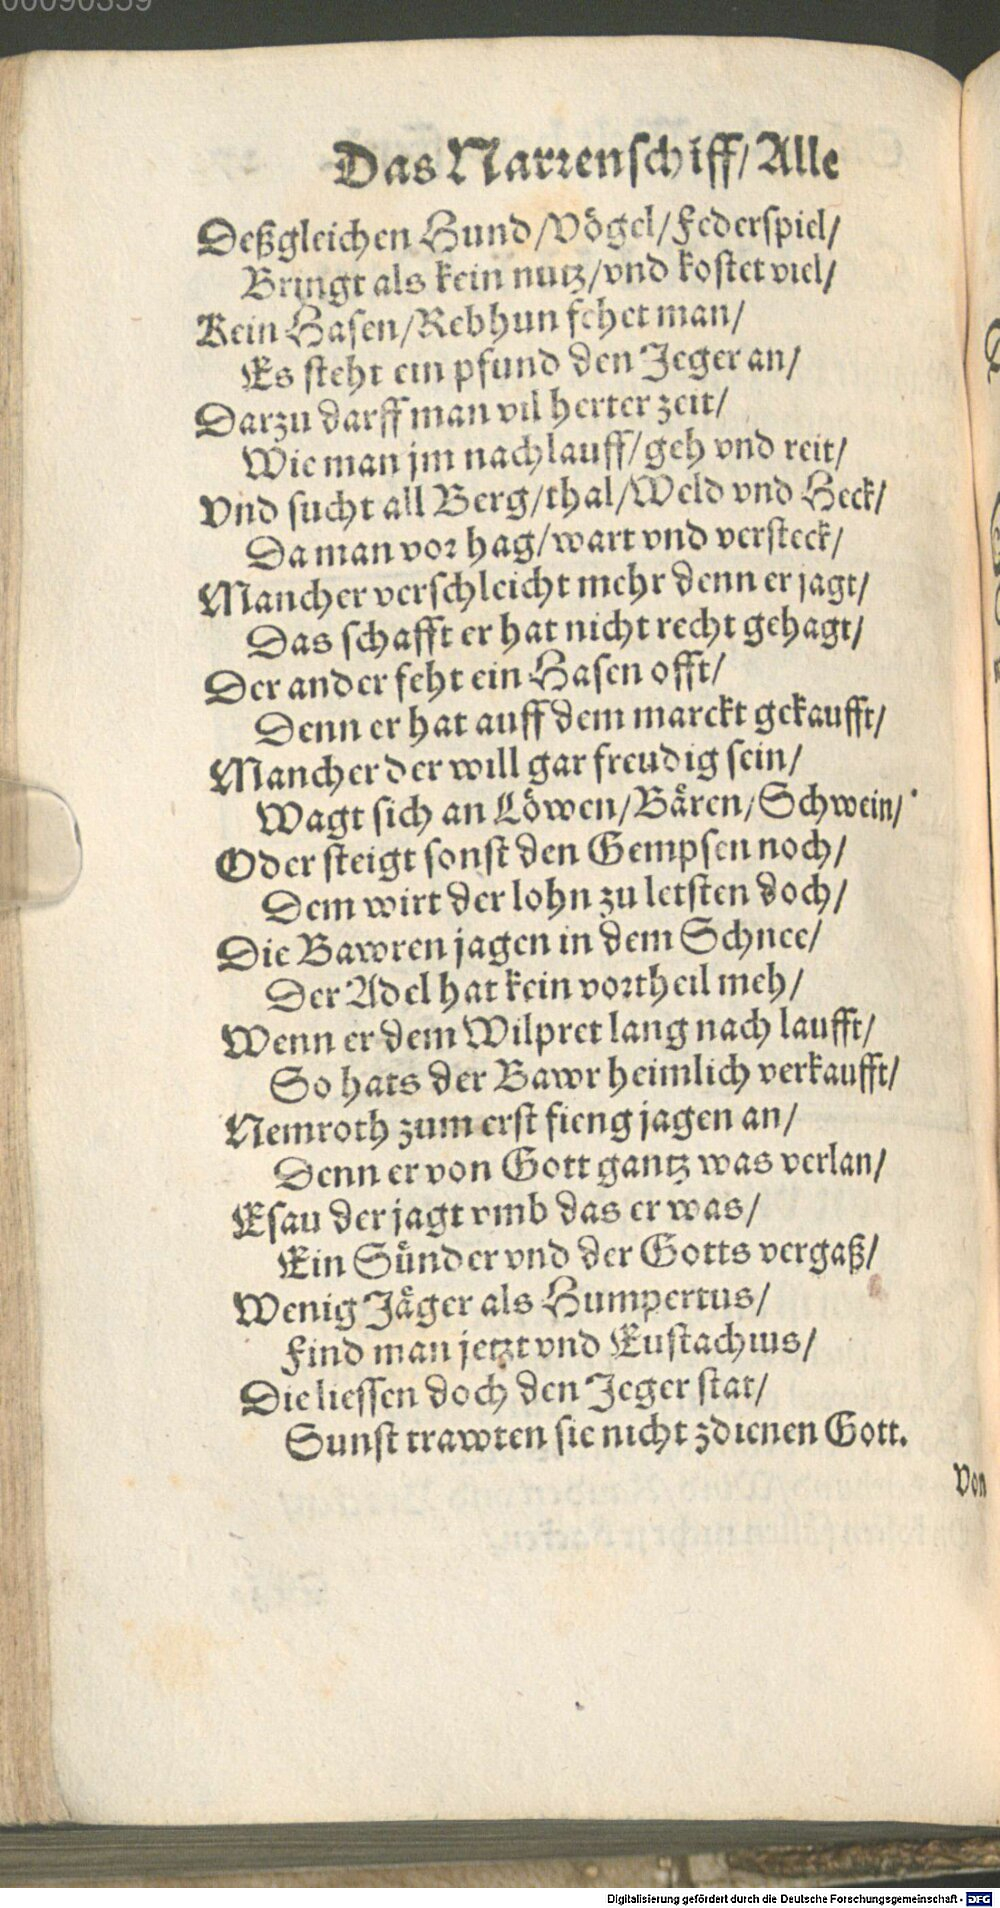 00090359
Das Narrenschiff/ Alle
Deßgleichen Hund/Vögel/Federspiel/
Bringt als kein nutz/vnd kostet viel/
Kein Hasen/Rebhun fehet man/
Es steht ein pfund den Jeger an/
Darzu darff man vil herter zeit/
Wie man jm nachlauff/geh vnd reit/
Vnd sucht all Berg/thal/Weld vnd Heck/
Da man vor hag/wart vnd versteck/
Mancher verschleicht mehr denn er jagt/
Das schafft er hat nicht recht gehagt/
Der ander feht ein Hasen offt/
Denn er hat auff dem marckt gekaufft/
Mancher der will gar freudig sein/
Wagt sich an Löwen/Bären/Schwein/
Oder steigt sonst den Gempsen noch/
Dem wirt der lohn zu letsten doch/
Die Bawren jagen in dem Schnee/
Der Adel hat kein vortheil meh/
Wenn er dem Wilpret lang nach laufft/
So hats der Bawr heimlich verkaufft/
Nemroth zum erst fieng jagen an/
Denn er von Gott gantz was verlan/
Esau der jagt vmb das er was/
Ein Sünder vnd der Gotts vergaß/
Wenig Jäger als Humpertus/
Find man jetzt vnd Eustachius/
Die liessen doch den Jeger stat/
Sunst trawten sie nicht zdienen Gott.
Von
Digitalisierung gefördert durch die Deutsche Forschungsgemeinschaft - DFG